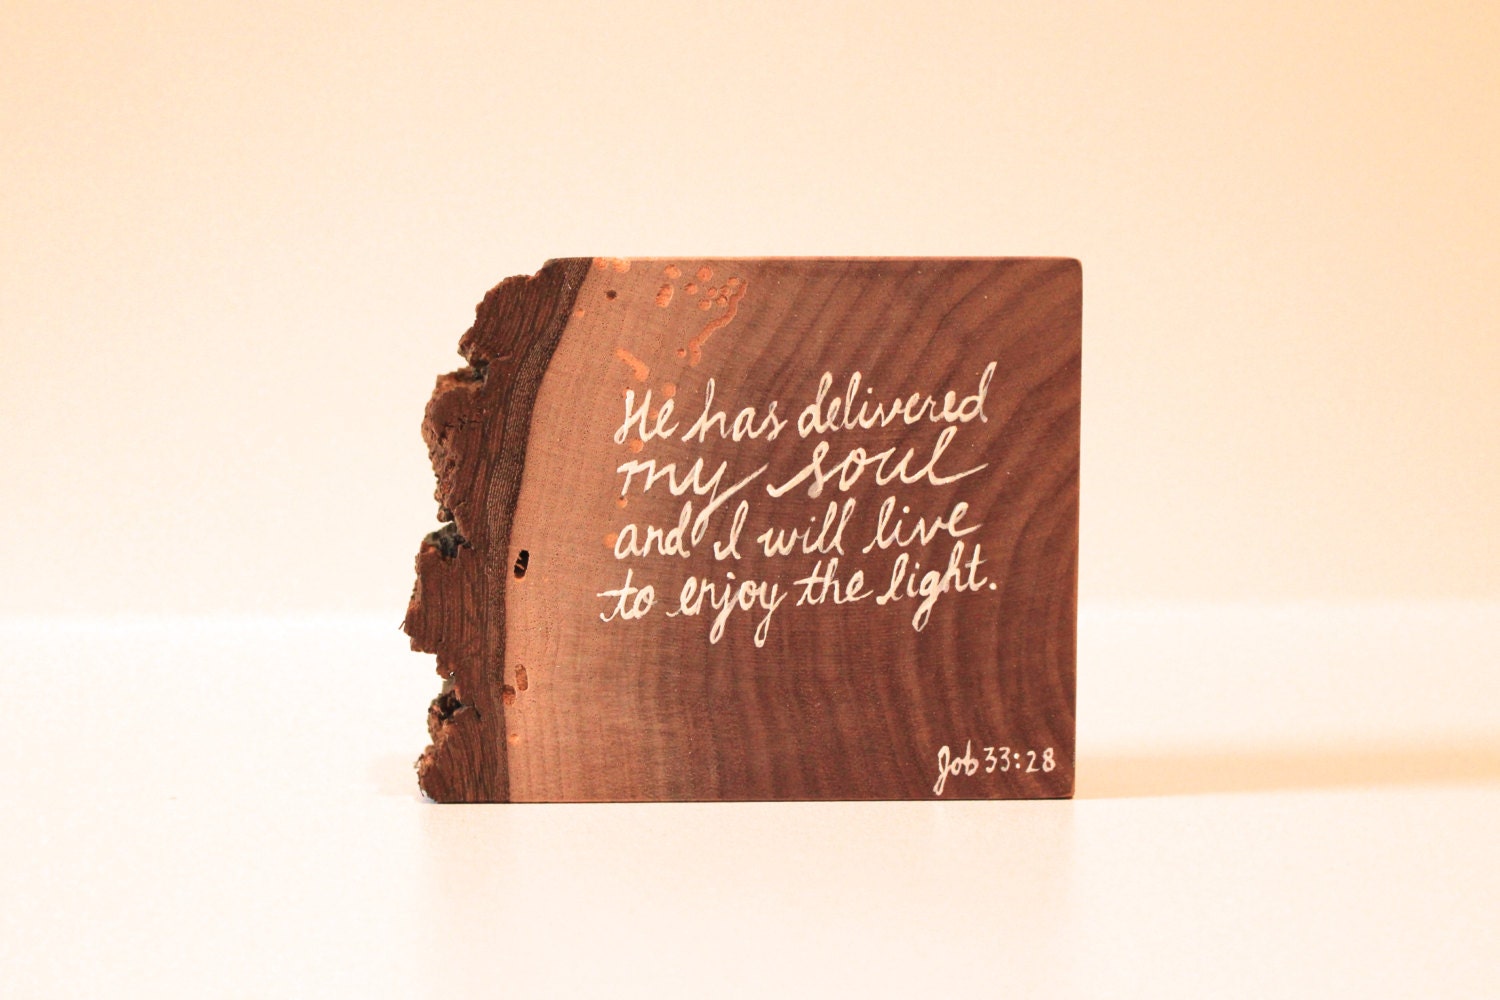 He has delivered
my soul
and I will live
to enjoy the light.
Job 33:28